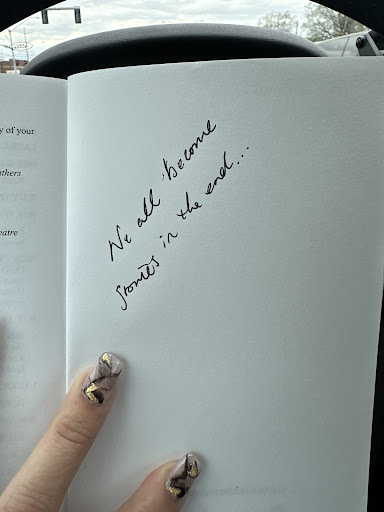 y of your
thers
eatre
We all become
stories in the end...